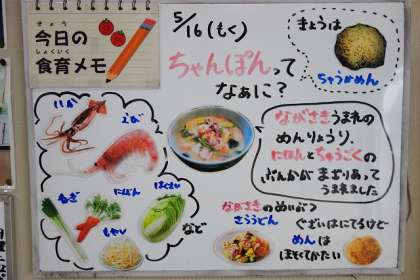 きょう
今日の
しょくいく
食育メモ
5/16(もく)
ちゃんぽんって
なぁに?
きょうは
ちゅうかめん
いか
えび
ねぎ
にんじん
はくさい
もやし
など
ながさきうまれの
めんりょうり。
にほんとちゅうごくの
ぶんかが まざりあって
うまれました
ながさきのめいぶつ
さらうどん
ぐざいはにてるけど
めんは
ほそくてかたい